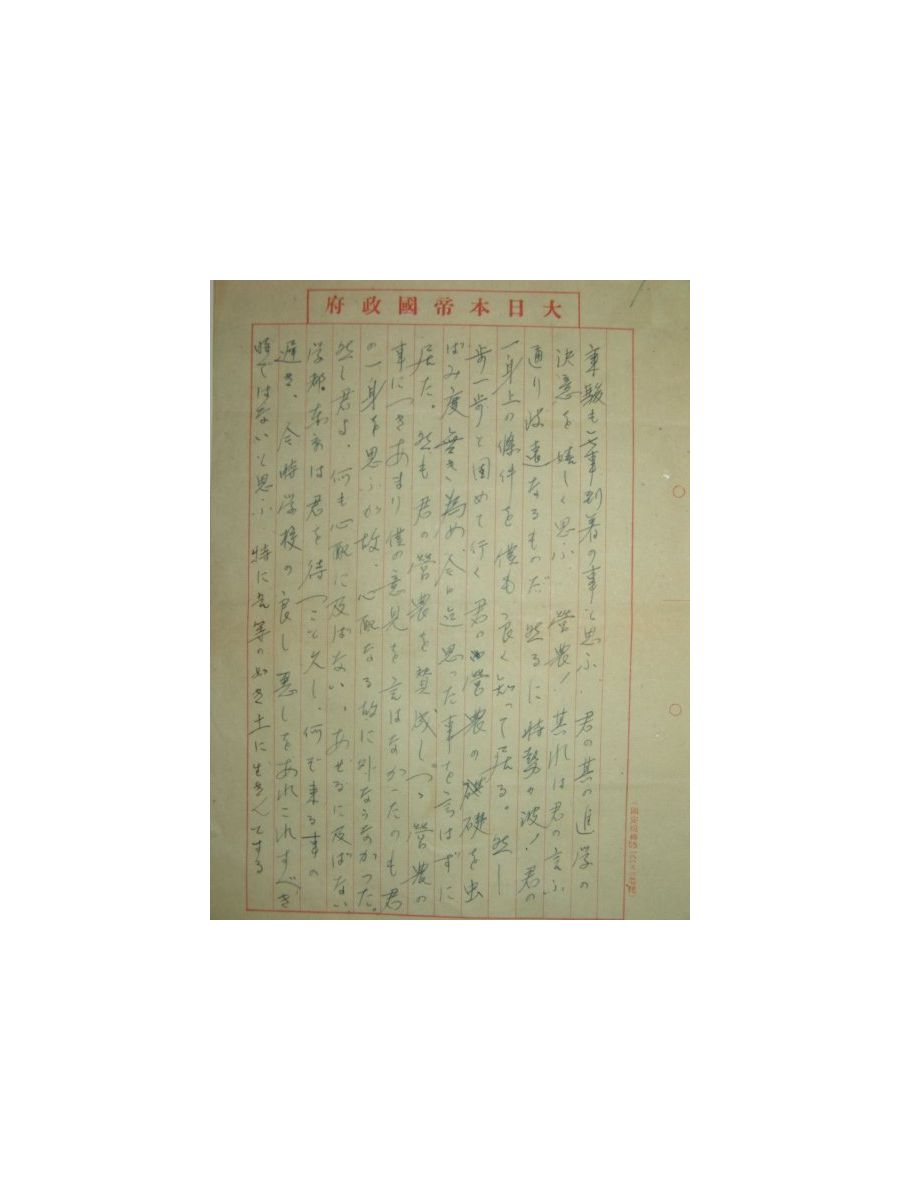 大日本帝國政府
車駿も無事到着の事と思ふ 君の其の進学の
決意を嬉しく思ふ 営農! 其れは君の言ふ
通り波遠なるものだ 然るに時勢の波! 君の
一身上の條件を僕も良く知って居る。然し
歩一歩と固めて行く君の営農の礎を虫
ばみ度無き為め今日迄思った事を言はずに
居た。然も君の営農を賛成しつゝ営農の
事につきあまり僕の意見を言はなかったのも君
の一身を思ふが故、心配なる故に外ならなかった。
然し君よ、何も心配に及ばない、あせるに及ばない
学都東京は君を待つこと久し、何ぞ来る事の
遅き、今時学校の良し悪しをあれこれすべき
時ではないと思ふ 特に吾等の如き土に生きんてする